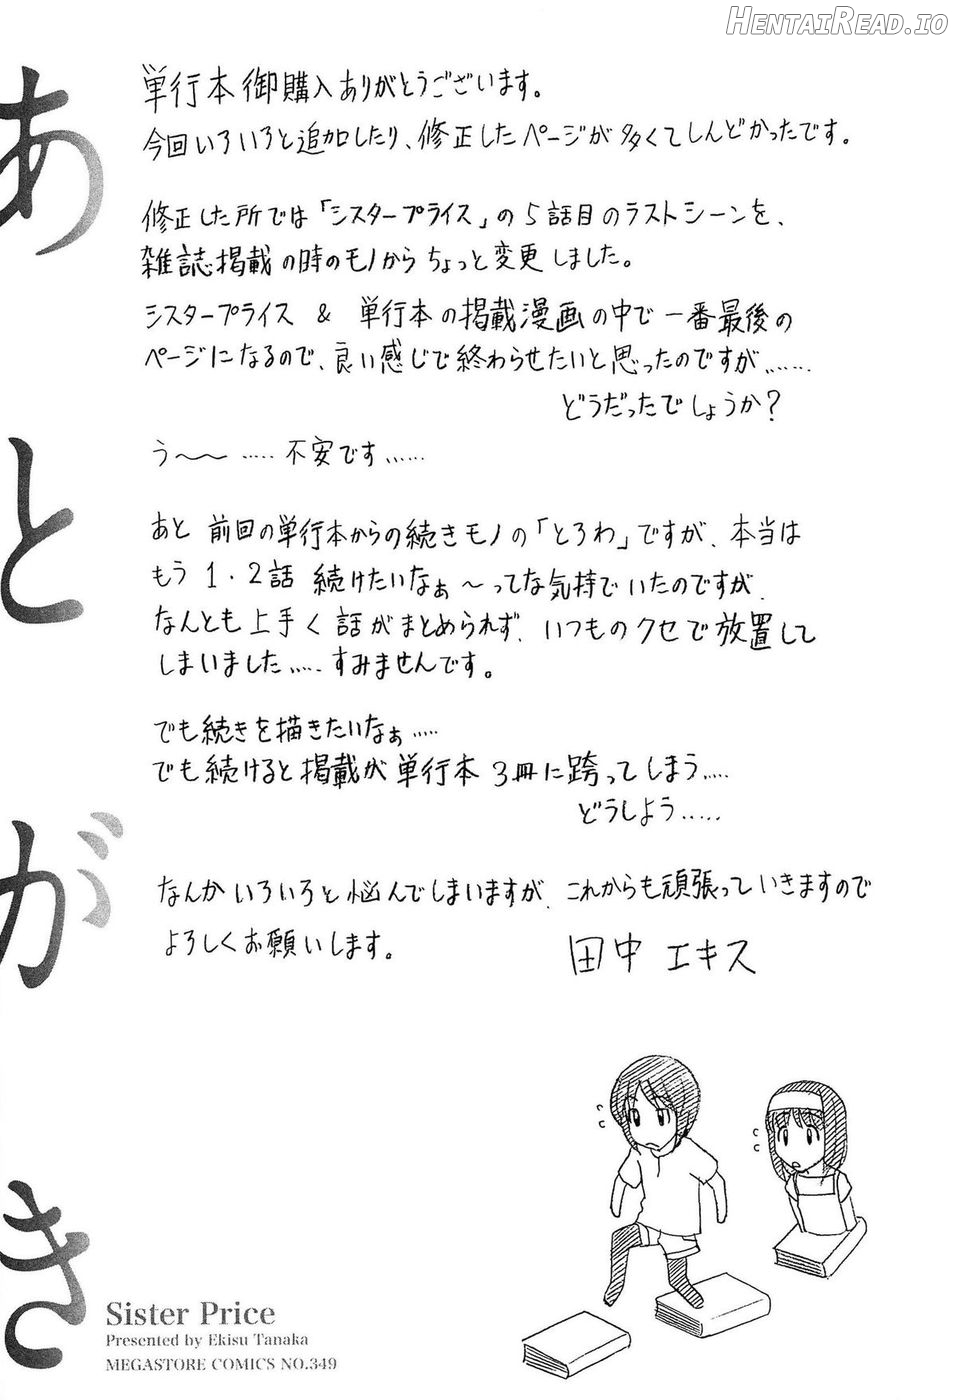 HentaiRead.io
あとがき
単行本御購入ありがとうございます。
今回いろいろと追加したり、修正したページが多くてしんどかったです。
修正した所では「シスタープライス」の5話目のラストシーンを、
雑誌掲載の時のモノからちょっと変更しました。
シスタープライス & 単行本の掲載漫画の中で一番最後の
ページになるので、良い感じで終わらせたいと思ったのですが……
どうだったでしょうか?
う〜〜……不安です……
あと 前回の単行本からの続きモノの「とろわ」ですが、本当は
もう1・2話 続けたいなぁ〜ってな気持でいたのですが、
なんとも上手く話がまとめられず、いつものクセで放置して
しまいました……すみませんです。
でも続きを描きたいなぁ……
でも続けると掲載が単行本3冊に跨ってしまう……
どうしよう……
なんかいろいろと悩んでしまいますが、これからも頑張っていきますので
よろしくお願いします。
田中 エキス
Sister Price
Presented by Ekisu Tanaka
MEGASTORE COMICS NO.349